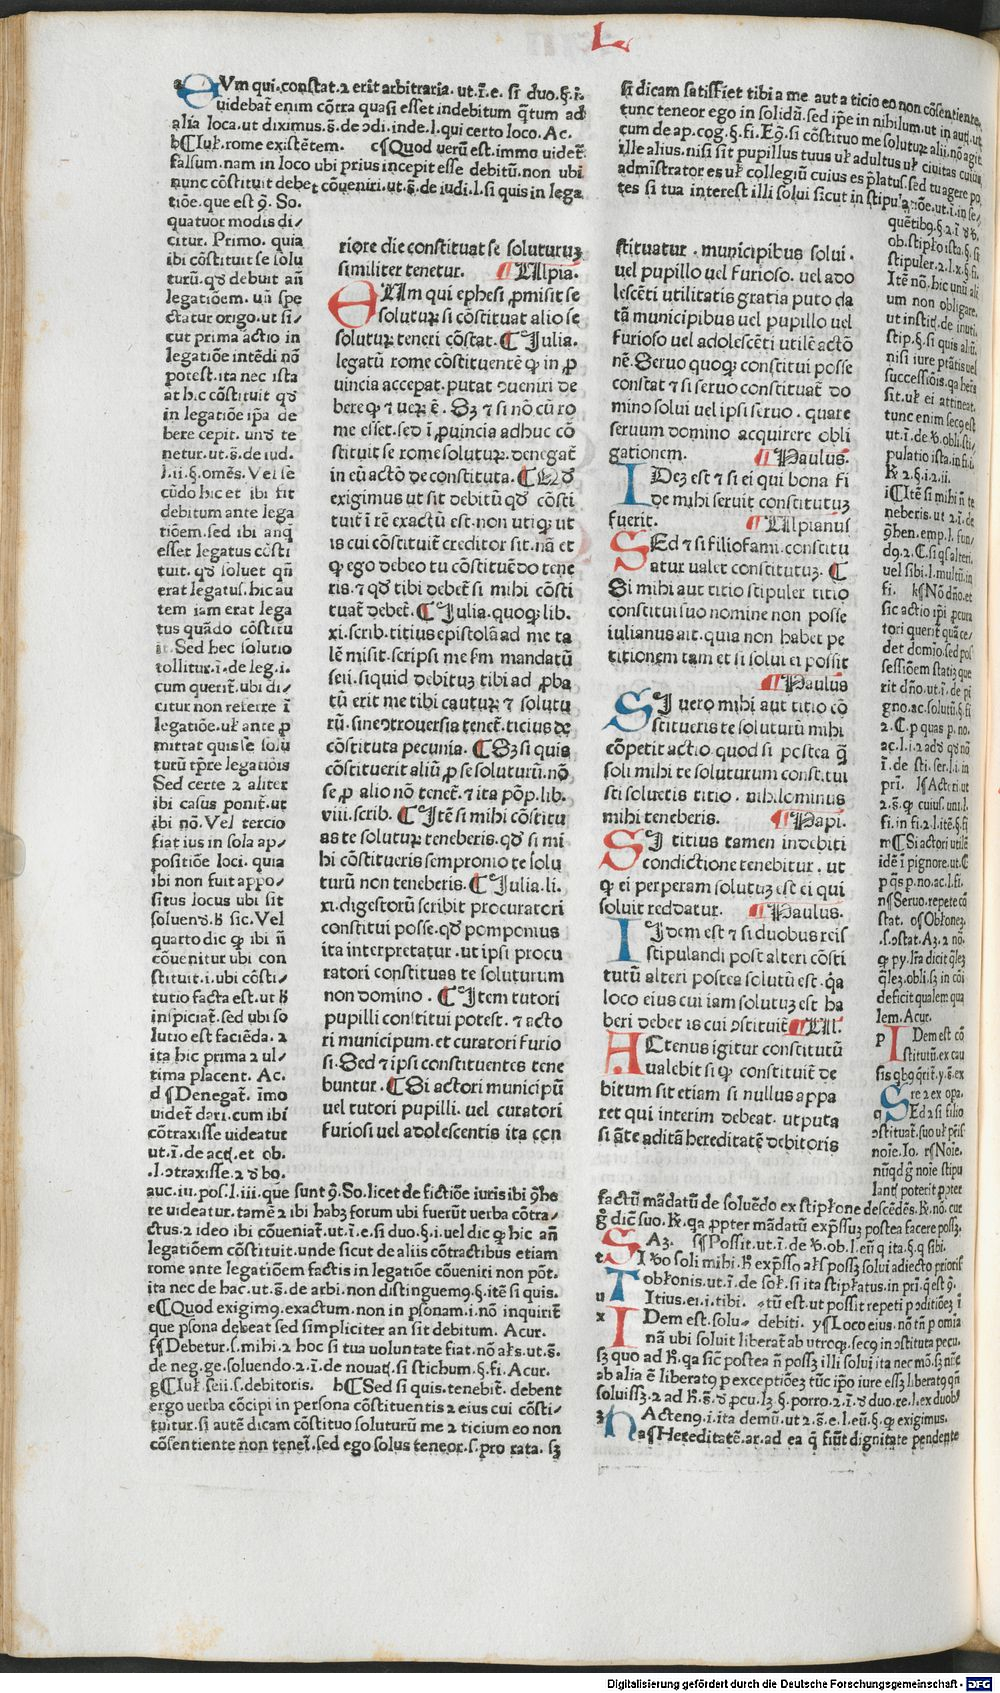 L
EVm qui.constat.⁊ erit arbitraria.ut.ī.e. si duo.§.i.
uidebat᷑ enim cōtra quasi esset indebitum q̄tum ad
alia loca.ut diximus.s̄.de ɔdi.inde.l.qui certo loco. Ac.
b¶Iul̵.rome existētem. c¶Quod uerū est.immo uidet᷑
falsum.nam in loco ubi prius incepit esse debitū.non ubi
nunc cōstituit debet cōueniri.ut.s̄.de iudi.l.si quis in lega
tiōe.que est ꝯ. So.
quatuor modis di/
citur. Primo. quia
ibi cōstituit se solu
turū.qđ debuit an̄
legatiōem. un̄ spe
ctatur origo.ut si/
cut prima actio in
legatiōe intēdi nō
potest.ita nec ista
at h.c cōstituit qđ
in legatiōe ip̄a de
bere cepit. unđ te
netur.ut.s̄.de iud.
l.ii.§.omēs. Vel se
cūdo hic et ibi fit
debitum ante lega
tiōem.sed ibi anq̄
esset legatus cōsti
tuit. qđ soluet qn̄
erat legatus.hic au
tem iam erat lega
tus quādo cōstitu
it. Sed hec solutio
tollitur.ī.de leg.i.
cum querit᷑.ubi di/
citur non referre ī
legatiōe.ul̵ ante p̄
mittat quis se solu
turū tp̄re legatiōis
Sed certe ⁊ aliter
ibi casus ponit᷑.ut
ibi nō. Vel tercio
fiat ius in sola ap/
positiōe loci. quia
ibi non fuit appo/
situs locus ubi sit
soluenđ.h̄ sic. Vel
quarto dic ꝙ ibi n̄
cōuenitur ubi con
stituit.i.ubi cōsti/
tutio facta est.ut h̄
inspiciat᷑.sed ubi so
lutio est faciēda. ⁊
ita hic prima ⁊ ul/
tima placent. Ac.
d ¶Denegat᷑. īmo
uidet᷑ dari.cum ibi
cōtraxisse uideatur
ut.ī.de actꝭ.et ob.
.l.ɔtraxisse.⁊ đ bo.
auc.iu.pos.l.iii.que sunt ꝯ̄. So.licet de fictiōe iuris ibi ꝯ̄he
re uideatur.tamē ⁊ ibi habꝫ forum ubi fuerūt uerba cōtra/
ctus.⁊ ideo ibi cōueniat᷑.ut.ī.e.si duo.§.i.uel dic ꝙ hic an̄
legatiōem cōstituit.unde sicut de aliis cōtractibus etiam
rome ante legatiōem factis in legatiōe cōueniri non pōt.
ita nec de hac.ut.s̄.de arbi.non distinguemꝯ.§.itē si quis.
e¶Quod exigimꝯ.exactum.non in p̱sonam.i.nō inquirit᷑
que p̱sona debeat sed simpliciter an sit debitum. Acur.
f¶Debetur.s.mihi.⁊ hoc si tua voluntate fiat.nō al̵s.ut.s̄.
de neg.ge.soluendo.⁊.ī.de nouatꝭ.si stichum.§.fi. Acur.
g¶Iul̵.seii.s.debitoris. h¶Sed si quis.tenebit᷑. debent
ergo uerba cōcipi in persona cōstituentis ⁊ eius cui cōsti/
tuitur.si autē dicam cōstituo soluturū me ⁊ ticium eo non
cōsentiente non tenet᷑.sed ego solus teneor.s.pro rata. sꝫ
riore die constituat se soluturuꝫ
similiter tenetur. ¶Ulpia.
EUm qui ephesi p̱misit se
soluturꝵ si cōstituat alio se
soluturꝵ teneri cōstat. ¶ Julia.
legatū rome cōstituente ꝙ in p̱
uincia accepat.putat ɔueniri de
bere ꝙ ⁊ uerꝵ ē. Sꝫ ⁊ si nō cū ro
me esset.sed ī p̱uincia adhuc cō
stituit se rome soluturꝵ.denegat᷑
in eū actō de constituta. ¶ Qđ
exigimus ut sit debitū qđ cōsti
tuit᷑ ī rē exactū est.non utiqꝫ ut
is cui cōstituit᷑ creditor sit.nā et
ꝙ ego debeo tu cōstituēdo tene
ris.⁊ qđ tibi debet᷑ si mihi cōsti
tuat᷑ debet᷑. ¶ Julia.quoqꝫ lib.
xi.scrib.titius epistolā ad me ta
lē misit.scripsi me s̄m mandatū
seii.siquid debituꝫ tibi ad p̱ba
tū erit me tibi cauturꝵ ⁊ solutu
rū.sine ɔtrouersia tenet᷑.ticius de
cōstituta pecunia. ¶ Sꝫ si quis
cōstituerit aliū p̱ se soluturū.nō
se p̱ alio nō tenet᷑.⁊ ita pōp.lib.
viii.scrib. ¶ Jtē si mihi cōstitu
as te soluturꝵ teneberis.qđ si mi
hi cōstitueris sempronio te solu
turū non teneberis. ¶ Julia.li.
xi.digestorū scribit procuratori
constitui posse.qđ pomponius
ita interpretatur.ut ipsi procu
ratori constituas te soluturum
non domino . ¶ Jtem tutori
pupilli constitui potest. ⁊ acto
ri municipum.et curatori furio
si. Sed ⁊ ipsi constituentes tene
buntur . ¶ Si actori municipū
uel tutori pupilli. uel curatori
furiosi uel adolescentis ita con
stituatur . municipibus solui.
uel pupillo uel furioso. uel ado
lescēti utilitatis gratia puto da
tā municipibus uel pupillo uel
furioso uel adolescēti utilē actō
nē. Seruo quoqꝫ constitui posse
constat ⁊ si seruo constituat᷑ do
mino solui uel ipsi seruo . quare
seruum domino acquirere obli
gationem. ¶Paulus.
IDeꝫ est ⁊ si ei qui bona fi
de mihi seruit constitutuꝫ
fuerit. ¶Ulpianus
SEd ⁊ si filiofami.constitu
atur ualet constitutuꝫ. ¶
Si mihi aut titio stipuler titio
constitui suo nomine non posse
iulianus ait.quia non habet pe
titionem tam et si solui ei possit
¶Paulus
SJ uero mihi aut titio cō
stitueris te soluturū mihi
cōpetit actio.quod si postea q̄
soli mihi te soluturum const.tui
sti solueris titio . nihilominus
mihi teneberis. ¶Papi.
SJ titius tamen indebiti
condictione tenebitur . ut
ꝙ ei perperam solutuꝫ est ei qui
soluit reddatur. ¶Paulus.
IJdem est ⁊ si duobus reis
stipulandi post alteri cōsti
tutū alteri postea solutū est.q̄a
loco eius cui iam solutuꝫ est ha
beri debet is cui ɔstituit᷑ ¶Ul.
ACtenus igitur constitutū
ualebit si ꝙ constituit᷑ de
bitum sit etiam si nullus appa
ret qui interim debeat. utputa
si āte aditā hereditatē debitoris
si dicam satisfiet tibi a me aut a ticio eo non cōsentiente,
tunc teneor ego in solidū.sed ip̄e in nihilum.ut in aut̄.ut
cum de ap.cog.§.fi. Eꝯ.si cōstituo me soluturꝵ alii.nō agit
ille alius.nisi sit pupillus tuus ul̵ adultus ul̵ ciuitas cuius
admīstrator es ul̵ collegiū cuius es p̄latus.sed tu agere po
tes si tua interest illi solui sicut in stipu'atiōe.ut.ī.in se/
quētibꝯ.§.⁊.ī.đ ꝟ.
ob.stipl̵o ista.§.si
stipuler.⁊.l.x.§.fi.
Itē nō.hic unū ali
um non obligare.
ut instit̄.de inuti.
stip.§.si quis aliū.
nisi iure pr̄atis uel
successiōis.qa heres
sit.ul̵ ei attineat.
tunc enim secꝯ est
ut.ī.de ꝟ.obli.sti/
pulatio ista.in fi.i.
R̵ ⁊.§.i.⁊.ii.
i¶Itē si mihi n̄ te
neberis.ut ⁊.ī.de
ꝯ̄hen.emp.l.fun/
dꝯ.⁊.C.si qͥs alteri.
uel sibi.l.multū.in
fi. k¶Nō dn̄o.et
sic actio ip̄i p̱cura
tori querit᷑ quā ce/
det domīo.sed pos
sessiōem statiꝫ que
rit dn̄o.ut.ī.de pi
gno.ac.solutū.§.fi
⁊.C.p quas p.no.
ac.l.i.⁊ adđ qđ nō
ī.de sti.ser.l.i.in
pri. l¶Actori ut
⁊.s̄.ꝙ cuius.uni.l.
fi.in fi.⁊.l.itē.§.fi
m¶Si actori utilē
idē ī pignore.ut.C
p qͣs p.no.ac.l.fi.
n¶Seruo.repete cō
stat. o¶Obl̵onēꝫ.
.s.ɔstat. Aꝫ.⁊ nō.
ꝙ py.Ir̄a dicit q̄lēꝫ
q̄lēꝫ.obli.sꝫ in cōi
deficit qualem qua
lem. Acur.
p IDem est cō
stitutū.ex cau
sis qbꝯ q̄rit᷑.ỿ.s̄.ex
re ⁊ ex opa.
q SEd ⁊ si filio
ɔstituat᷑.suo ul̵ pr̄is
noie.Io. r¶Noie.
nūqd gͦ noie stipu
lantꝭ poterit p̱pter
factū mādatū de soluēdo ex stipl̵one descēdēs.R̵.nō.cuꝫ
gͦ dic̄ suo. R̵.qa p̱pter mādatū exp̄ssuꝫ postea facere possꝫ.
Aꝫ. s¶Possit.ut.ī.de ꝟ.ob.l.eū q̄ ita.§.q sibi.
t SI ꝟo soli mihi. h̄ exp̄sso al̵s possꝫ solui adiecto prioris
obl̵onis.ut.ī.de sol̵.si ita stipl̵atus.in pri.q̄ est ꝯ̄.
u TItius.ei.i.tibi. tū est.ut possit repeti p ɔditiōeꝫ ī
x IDem est.solu/ debiti. y¶Loco eius.nō tn̄ p omia
nā ubi soluit liberat᷑ ab utroqꝫ.secꝯ in ɔstituta pecu.
sꝫ quo ad h̄.qa sic̄ postea n̄ possꝫ illi solui ita nec mō.sꝫ nūc
ab alia ē liberatꝯ p exceptiōeꝫ tūc ip̱o iure essꝫ liberatꝯ qn̄
soluissꝫ.⁊ ad h̄.s̄.đ p̱cu.l.ꝫ.§.porro.⁊.ī.đ duo.re.l.ex duobꝯ
z HActenꝯ.i.ita demū.ut ⁊.s̄.e.l.eū.§.ꝙ exigimus.
a¶Hereditatē.ar.ad ea q̄ fiūt dignitate pendente
Digitalisierung gefördert durch die Deutsche Forschungsgemeinschaft - DFG